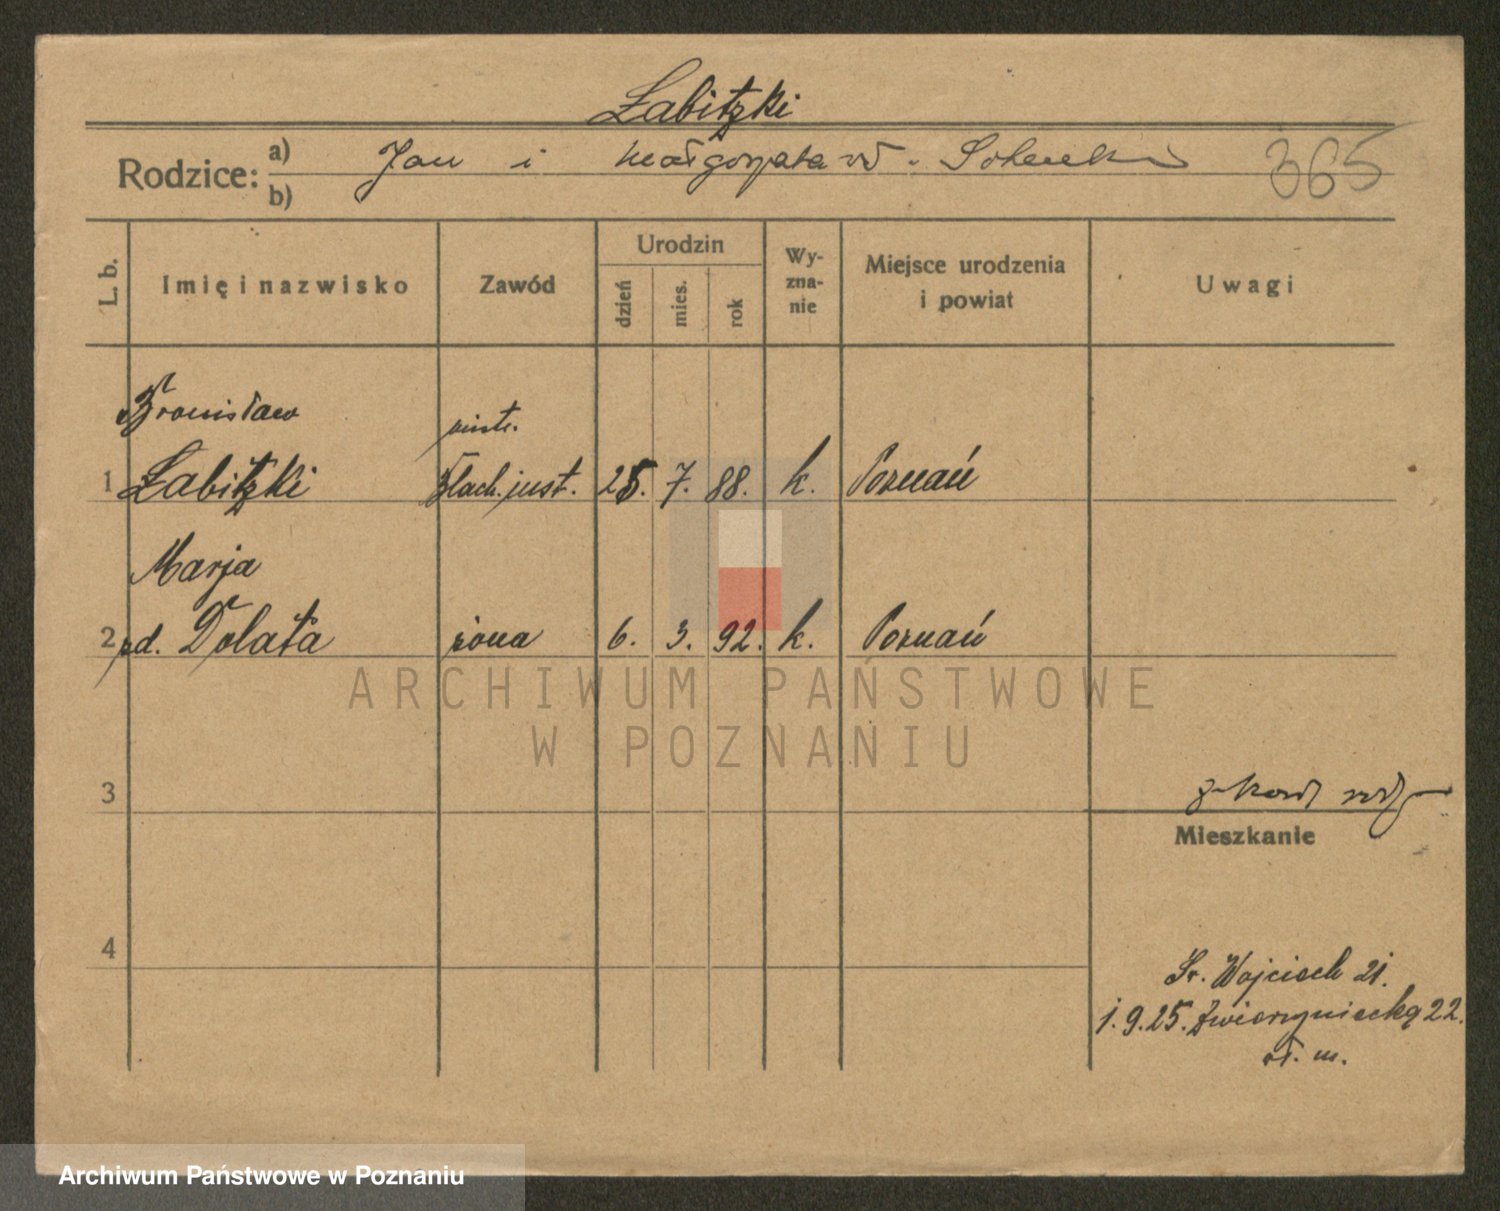 Łabitzki
Rodzice: a) b) Jan i Małgorzata
365
L. b.
Imię i nazwisko
Zawód
Urodzin
dzień
mies.
rok
Wy-
zna-
nie
Miejsce urodzenia
i powiat
Uwagi
Bronisław
mistr.
1 Łabitzki blach. inst. 25. 7. 88. k. Poznań
Marja
2 zd. Dolata żona 6. 3. 92. k. Poznań
ARCHIWUM PAŃSTWOWE
W POZNANIU
3
Mieszkanie
4
Św. Wojciech 21.
1.9.25. Zwierzyniecką 22.
wł. m.
Archiwum Państwowe w Poznaniu